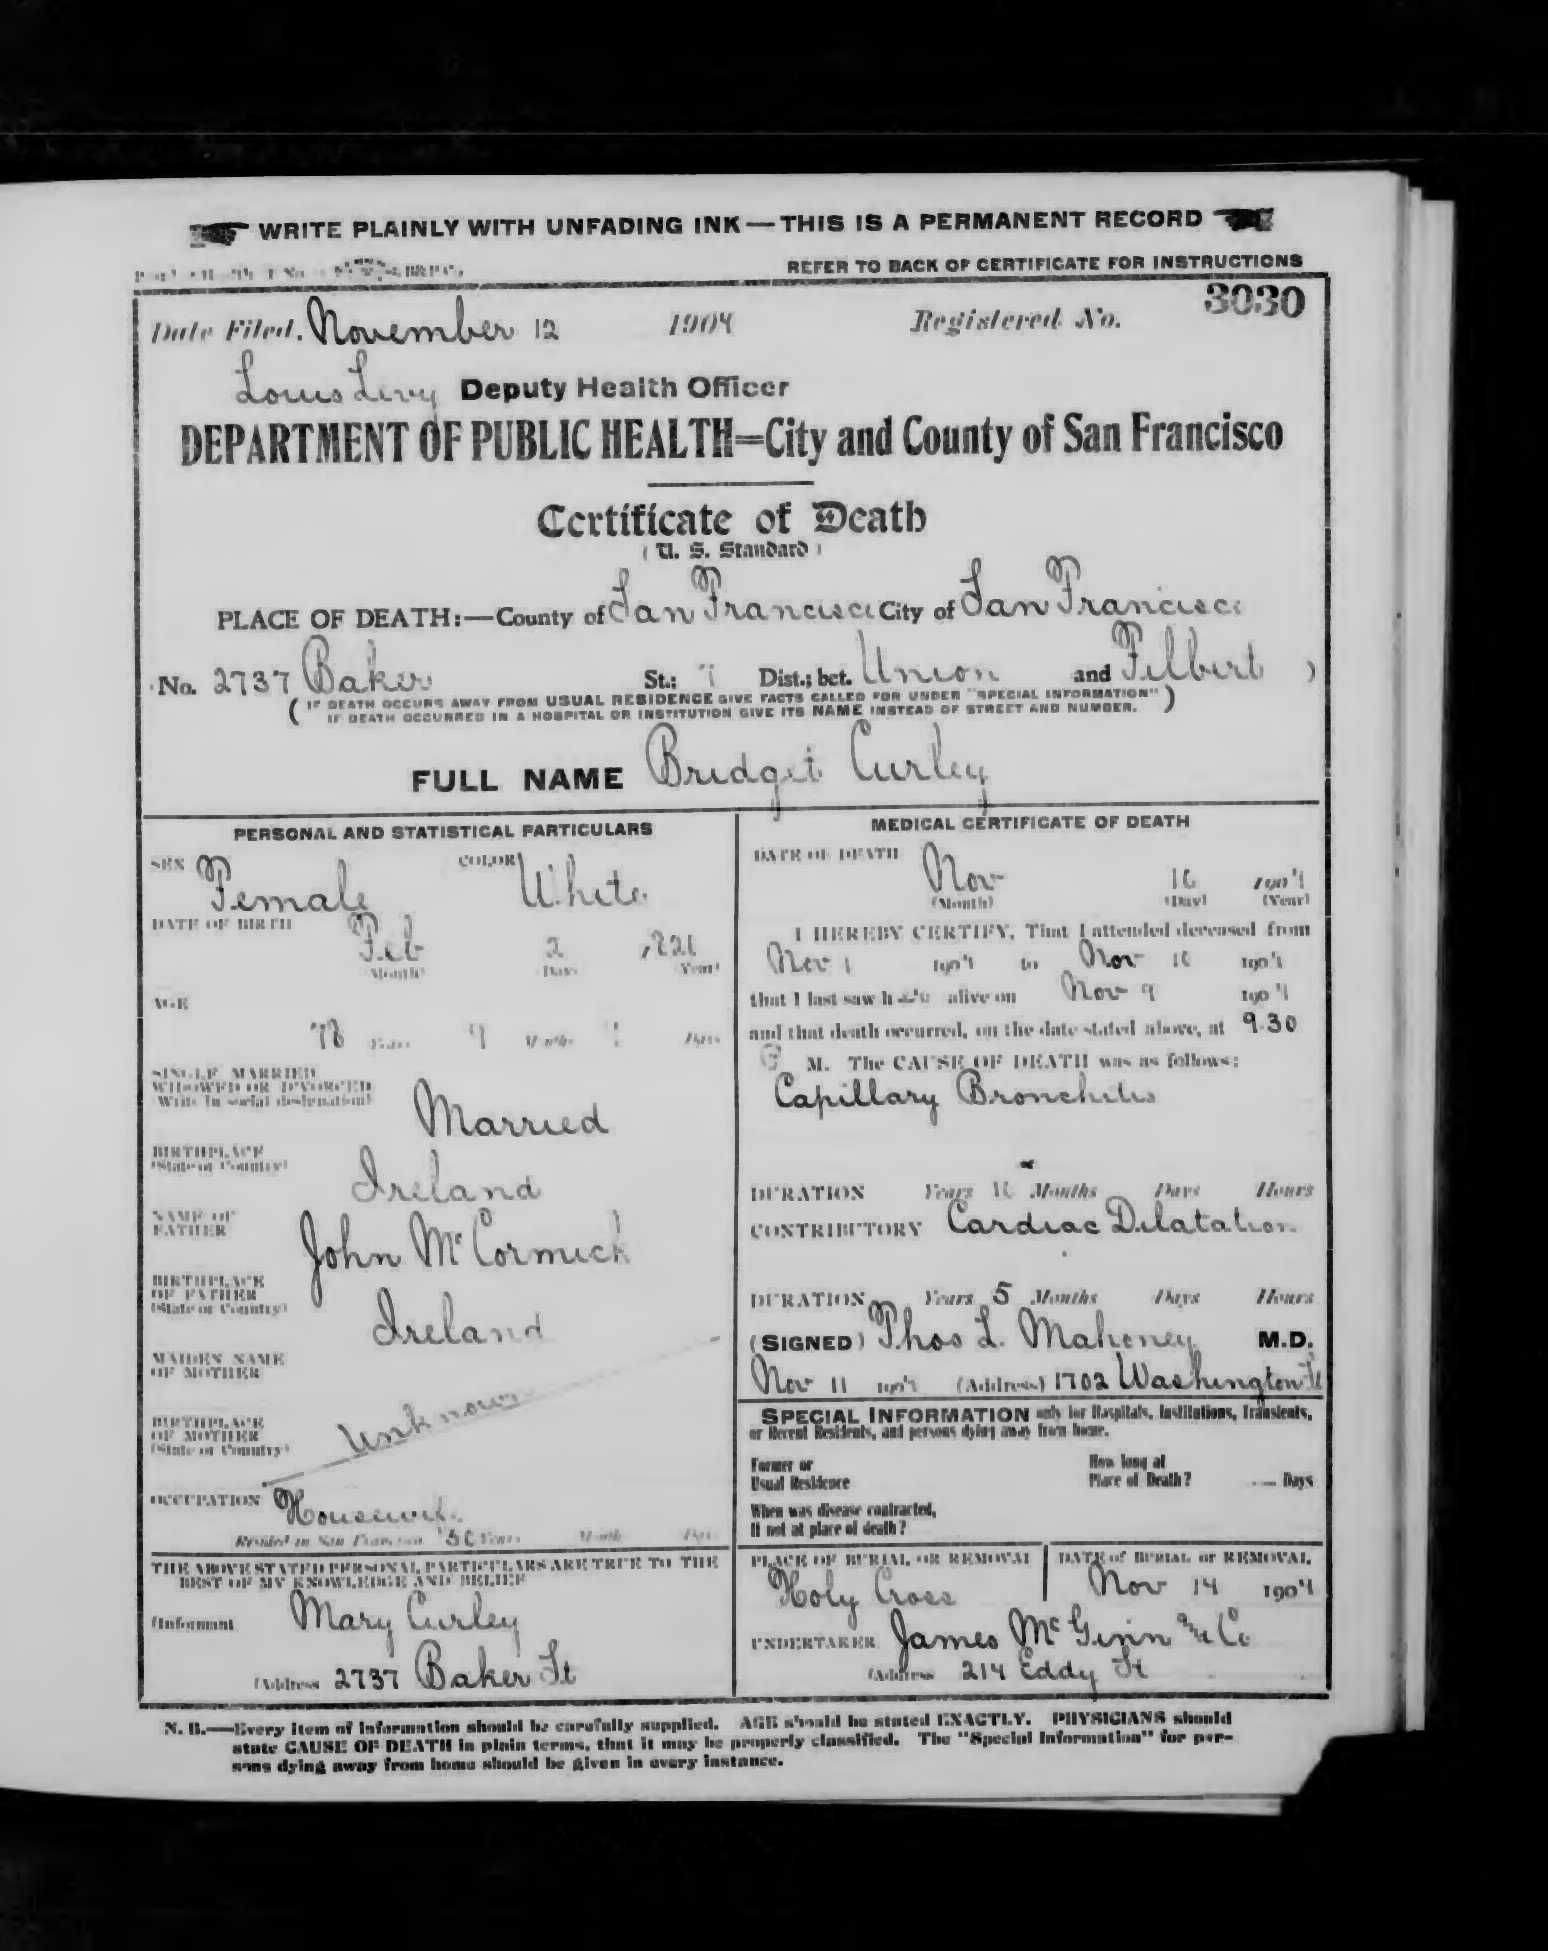 WRITE PLAINLY WITH UNFADING INK—THIS IS A PERMANENT RECORD
REFER TO BACK OF CERTIFICATE FOR INSTRUCTIONS
Date Filed, November 12 1904 Registered No. 3030
Louis Levy Deputy Health Officer
DEPARTMENT OF PUBLIC HEALTH=City and County of San Francisco
Certificate of Death
(U. S. Standard)
PLACE OF DEATH:—County of San Francisco City of San Francisco
No. 2737 Baker St.; Dist.; bet. Union and Filbert )
( IF DEATH OCCURS AWAY FROM USUAL RESIDENCE GIVE FACTS CALLED FOR UNDER "SPECIAL INFORMATION" )
IF DEATH OCCURRED IN A HOSPITAL OR INSTITUTION GIVE ITS NAME INSTEAD OF STREET AND NUMBER.
FULL NAME Bridget Curley
PERSONAL AND STATISTICAL PARTICULARS
SEX Female COLOR White
DATE OF BIRTH Feb 2
(Month) (Day) (Year)
AGE
78 Years 9 Months Days
SINGLE MARRIED
WIDOWED OR DIVORCED
(Write in social designation) Married
BIRTHPLACE
(State or Country) Ireland
NAME OF
FATHER John McCormick
BIRTHPLACE
OF FATHER
(State or Country) Ireland
MAIDEN NAME
OF MOTHER
BIRTHPLACE
OF MOTHER
(State or Country) Unknown
OCCUPATION Housewife
Resided in San Francisco Years Months Days
THE ABOVE STATED PERSONAL PARTICULARS ARE TRUE TO THE
BEST OF MY KNOWLEDGE AND BELIEF
(Informant Mary Curley
(Address 2737 Baker St
MEDICAL CERTIFICATE OF DEATH
DATE OF DEATH Nov 10 1904
(Month) (Day) (Year)
I HEREBY CERTIFY, That I attended deceased from
Nov 1 1904 to Nov 10 1904
that I last saw her alive on Nov 9 1904
and that death occurred, on the date stated above, at 9.30
M. The CAUSE OF DEATH was as follows:
Capillary Bronchitis
DURATION Years 10 Months Days Hours
CONTRIBUTORY Cardiac Dilatation
DURATION Years 5 Months Days Hours
(SIGNED) Thos L. Mahoney M.D.
Nov 11 1904 (Address) 1702 Washington St
SPECIAL INFORMATION only for Hospitals, Institutions, Transients,
or Recent Residents, and persons dying away from home.
Former or
Usual Residence
How long at
Place of Death? Days
When was disease contracted,
If not at place of death?
PLACE OF BURIAL OR REMOVAL
Holy Cross
DATE of BURIAL or REMOVAL
Nov 14 1904
UNDERTAKER James McGinn and Co
(Address 214 Eddy St
N. B.—Every item of information should be carefully supplied. AGE should be stated EXACTLY. PHYSICIANS should
state CAUSE OF DEATH in plain terms, that it may be properly classified. The "Special Information" for per-
sons dying away from home should be given in every instance.